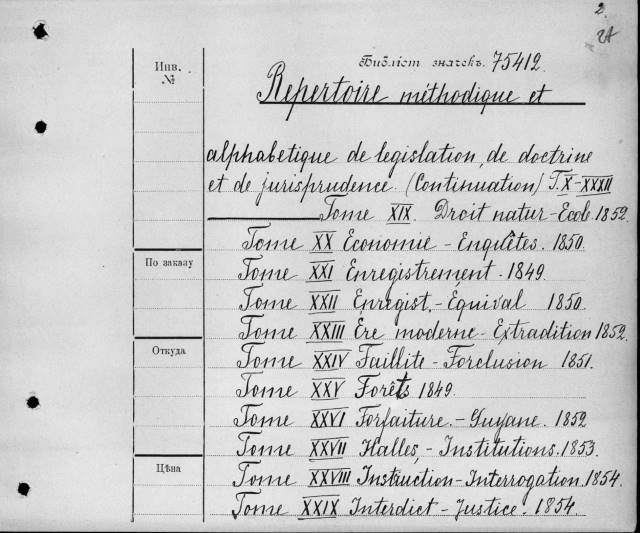 2.
2A
Инв.
№
Библіот значекъ. 75412.
Repertoire méthodique et
alphabetique de legislation, de doctrine
et de jurisprudence. (Continuation) T. X-XXXII
Tome XIX. Droit natur-Ecol. 1852.
Tome XX Economie - Enquêtes. 1850.
По заказу
Tome XXI Enregistrement - 1849.
Tome XXII Enregist. - Equival 1850.
Tome XXIII Ere moderne - Extradition 1852.
Откуда
Tome XXIV Faillite - Forclusion 1851.
Tome XXV Forêts 1849.
Tome XXVI Forfaiture. - Guyane. 1852
Tome XXVII Halles, - Institutions. 1853.
Цѣна
Tome XXVIII Instruction - Interrogation. 1854.
Tome XXIX Interdict - Justice. 1854.